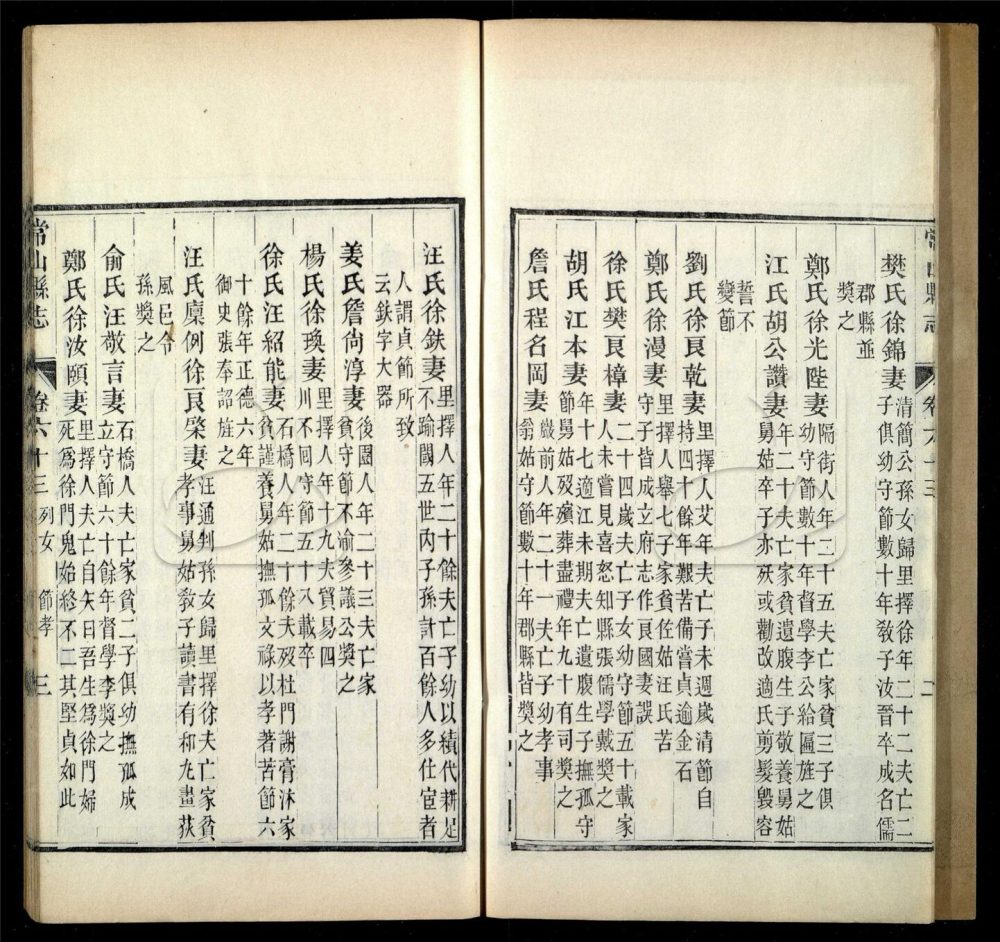 常山縣志
卷六十三
二
樊氏徐錦妻
清簡公孫女歸里擇徐年二十二夫亡二
子俱幼守節數十年敎子汝晉卒成名儒
郡縣並
獎之
鄭氏徐光陛妻
隔街人年二十五夫亡家貧三子俱
幼守節數十年督學李公給匾旌之
江氏胡公讚妻
年二十夫亡家貧遺腹生子敬養舅姑
舅姑卒子亦歿或勸改適氏剪髮毀容
誓不
變節
劉氏徐良乾妻
里擇人艾年夫亡子未週歲清節自
持四十餘年艱苦備嘗貞逾金石
鄭氏徐漫妻
里擇人舉七子家貧佐姑汪氏苦
守子皆成立府志作良國妻誤
徐氏樊良樟妻
二十四歲夫亡子女幼守節五十載家
人未嘗見喜怒知縣張儒學戴獎之
胡氏江本妻
年十七適江未期夫亡遺腹生子撫孤守
節舅姑歿殯葬盡禮年九十有司獎之
詹氏程名岡妻
嚴前人年二十一夫亡子幼孝事
翁姑守節數十年郡縣皆獎之
汪氏徐鉄妻
里擇人年二十餘夫亡子幼以績代耕足
不踰閾五世內子孫計百餘人多仕宦者
人謂貞節所致
云鉄字大器
姜氏詹尙淳妻
後園人年二十三夫亡家
貧守節不渝參議公獎之
楊氏徐瑍妻
里擇人年十九夫貿易四
川不囘守節五十八載卒
徐氏汪紹能妻
石橋人年二十餘夫歿杜門謝膏沐家
貧謹養舅姑撫孤文祿以孝著苦節六
十餘年正德六年
御史張奉詔旌之
汪氏廩例徐良棨妻
汪通判孫女歸里擇徐夫亡家貧
孝事舅姑敎子讀書有和丸畫荻
風邑令
孫獎之
俞氏汪敬言妻
石橋人夫亡家貧二子俱幼撫孤成
立守節六十餘年督學李獎之
鄭氏徐汝頤妻
里擇人夫亡自矢曰吾生爲徐門婦
死爲徐門鬼始終不二其堅貞如此
常山縣志
卷六十三
列女
節孝
三